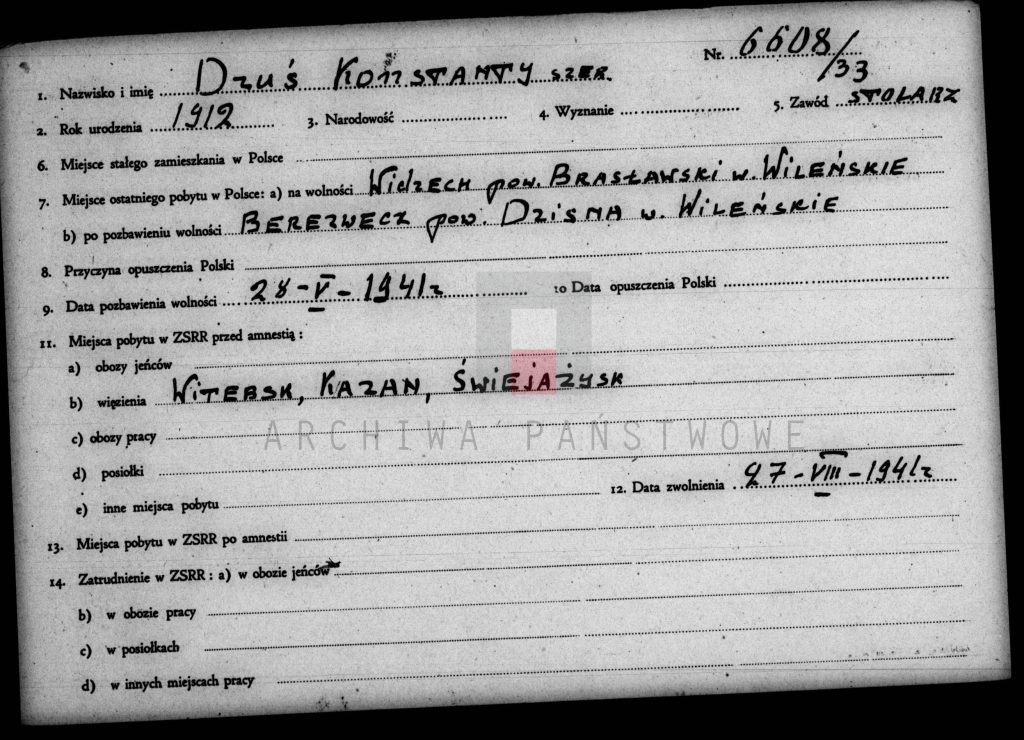 Nr. 6608/33
1. Nazwisko i imię Dzuś Konstanty szer.
2. Rok urodzenia 1912 3. Narodowość 4. Wyznanie 5. Zawód stolarz
6. Miejsce stałego zamieszkania w Polsce
7. Miejsce ostatniego pobytu w Polsce: a) na wolności Widzech pow. Brasławski w. Wileńskie
b) po pozbawieniu wolności Berezwecz pow. Dzisna w. Wileńskie
8. Przyczyna opuszczenia Polski
9. Data pozbawienia wolności 28-V-1941 r 10 Data opuszczenia Polski
11. Miejsca pobytu w ZSRR przed amnestią :
a) obozy jeńców
b) więzienia Witebsk, Kazan, Świejażysk
ARCHIWA PAŃSTWOWE
c) obozy pracy
d) posiołki
e) inne miejsca pobytu 12. Data zwolnienia 27-VIII-1941 r
13. Miejsca pobytu w ZSRR po amnestii
14. Zatrudnienie w ZSRR : a) w obozie jeńców
b) w obozie pracy
c) w posiołkach
d) w innych miejscach pracy